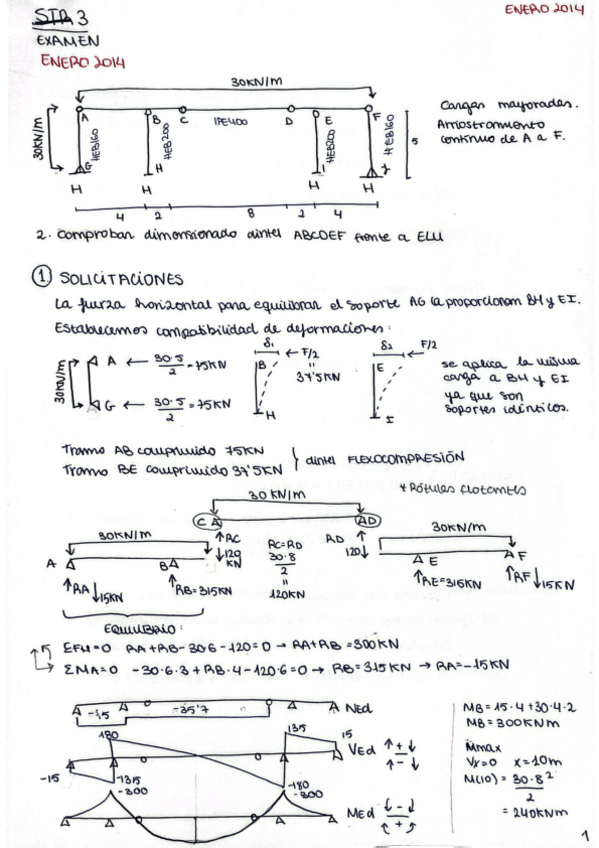 STR 3
ENERO 2014
EXAMEN
ENERO 2014
30KN/m
A B C IPE400 D E F
30KN/m
HEB160 HEB200 HEB200 HEB160
G H I J
5
H H H H
4 2 8 2 4
Cargas mayoradas.
Arriostramiento
continuo de A a F.
2. Comprobar dimensionado dintel ABCDEF frente a ELU
1 SOLICITACIONES
La fuerza horizontal para equilibrar el soporte AG la proporcionan BH y EI.
Establecemos compatibilidad de deformaciones:
30KN/m
A ← 30·5/2 = 75KN
G ← 30·5/2 = 75KN
δ1 ← F/2 = 37'5KN
B
H
δ2 ← F/2
E
I
se aplica la misma
carga a BH y EI
ya que son
soportes idénticos.
Tramo AB comprimido 75KN
Tramo BE comprimido 37'5KN
} dintel FLEXOCOMPRESIÓN
+ Rótulas flotantes
30 KN/m
C D
30KN/m
↑RC ↓120 KN
RC=RD
30·8/2
=
120KN
RD↑ 120↓
30KN/m
A B
↑RA ↓15KN
↑RB=315KN
E F
↑RE=315KN
↑RF ↓15KN
EQUILIBRIO:
ΣFV=0 RA+RB-30·6-120=0 → RA+RB=300KN
ΣMA=0 -30·6·3+RB·4-120·6=0 → RB=315KN → RA=-15KN
-35'7
NEd
MB=15·4+30·4·2
MB=300KNm
180 135 15
-15 -135 -180
VEd ↑+↓ ↑-↓
Mmax
Vx=0 x=10m
M(10)=30·8²/2
=240KNm
-300 -300
MEd
1